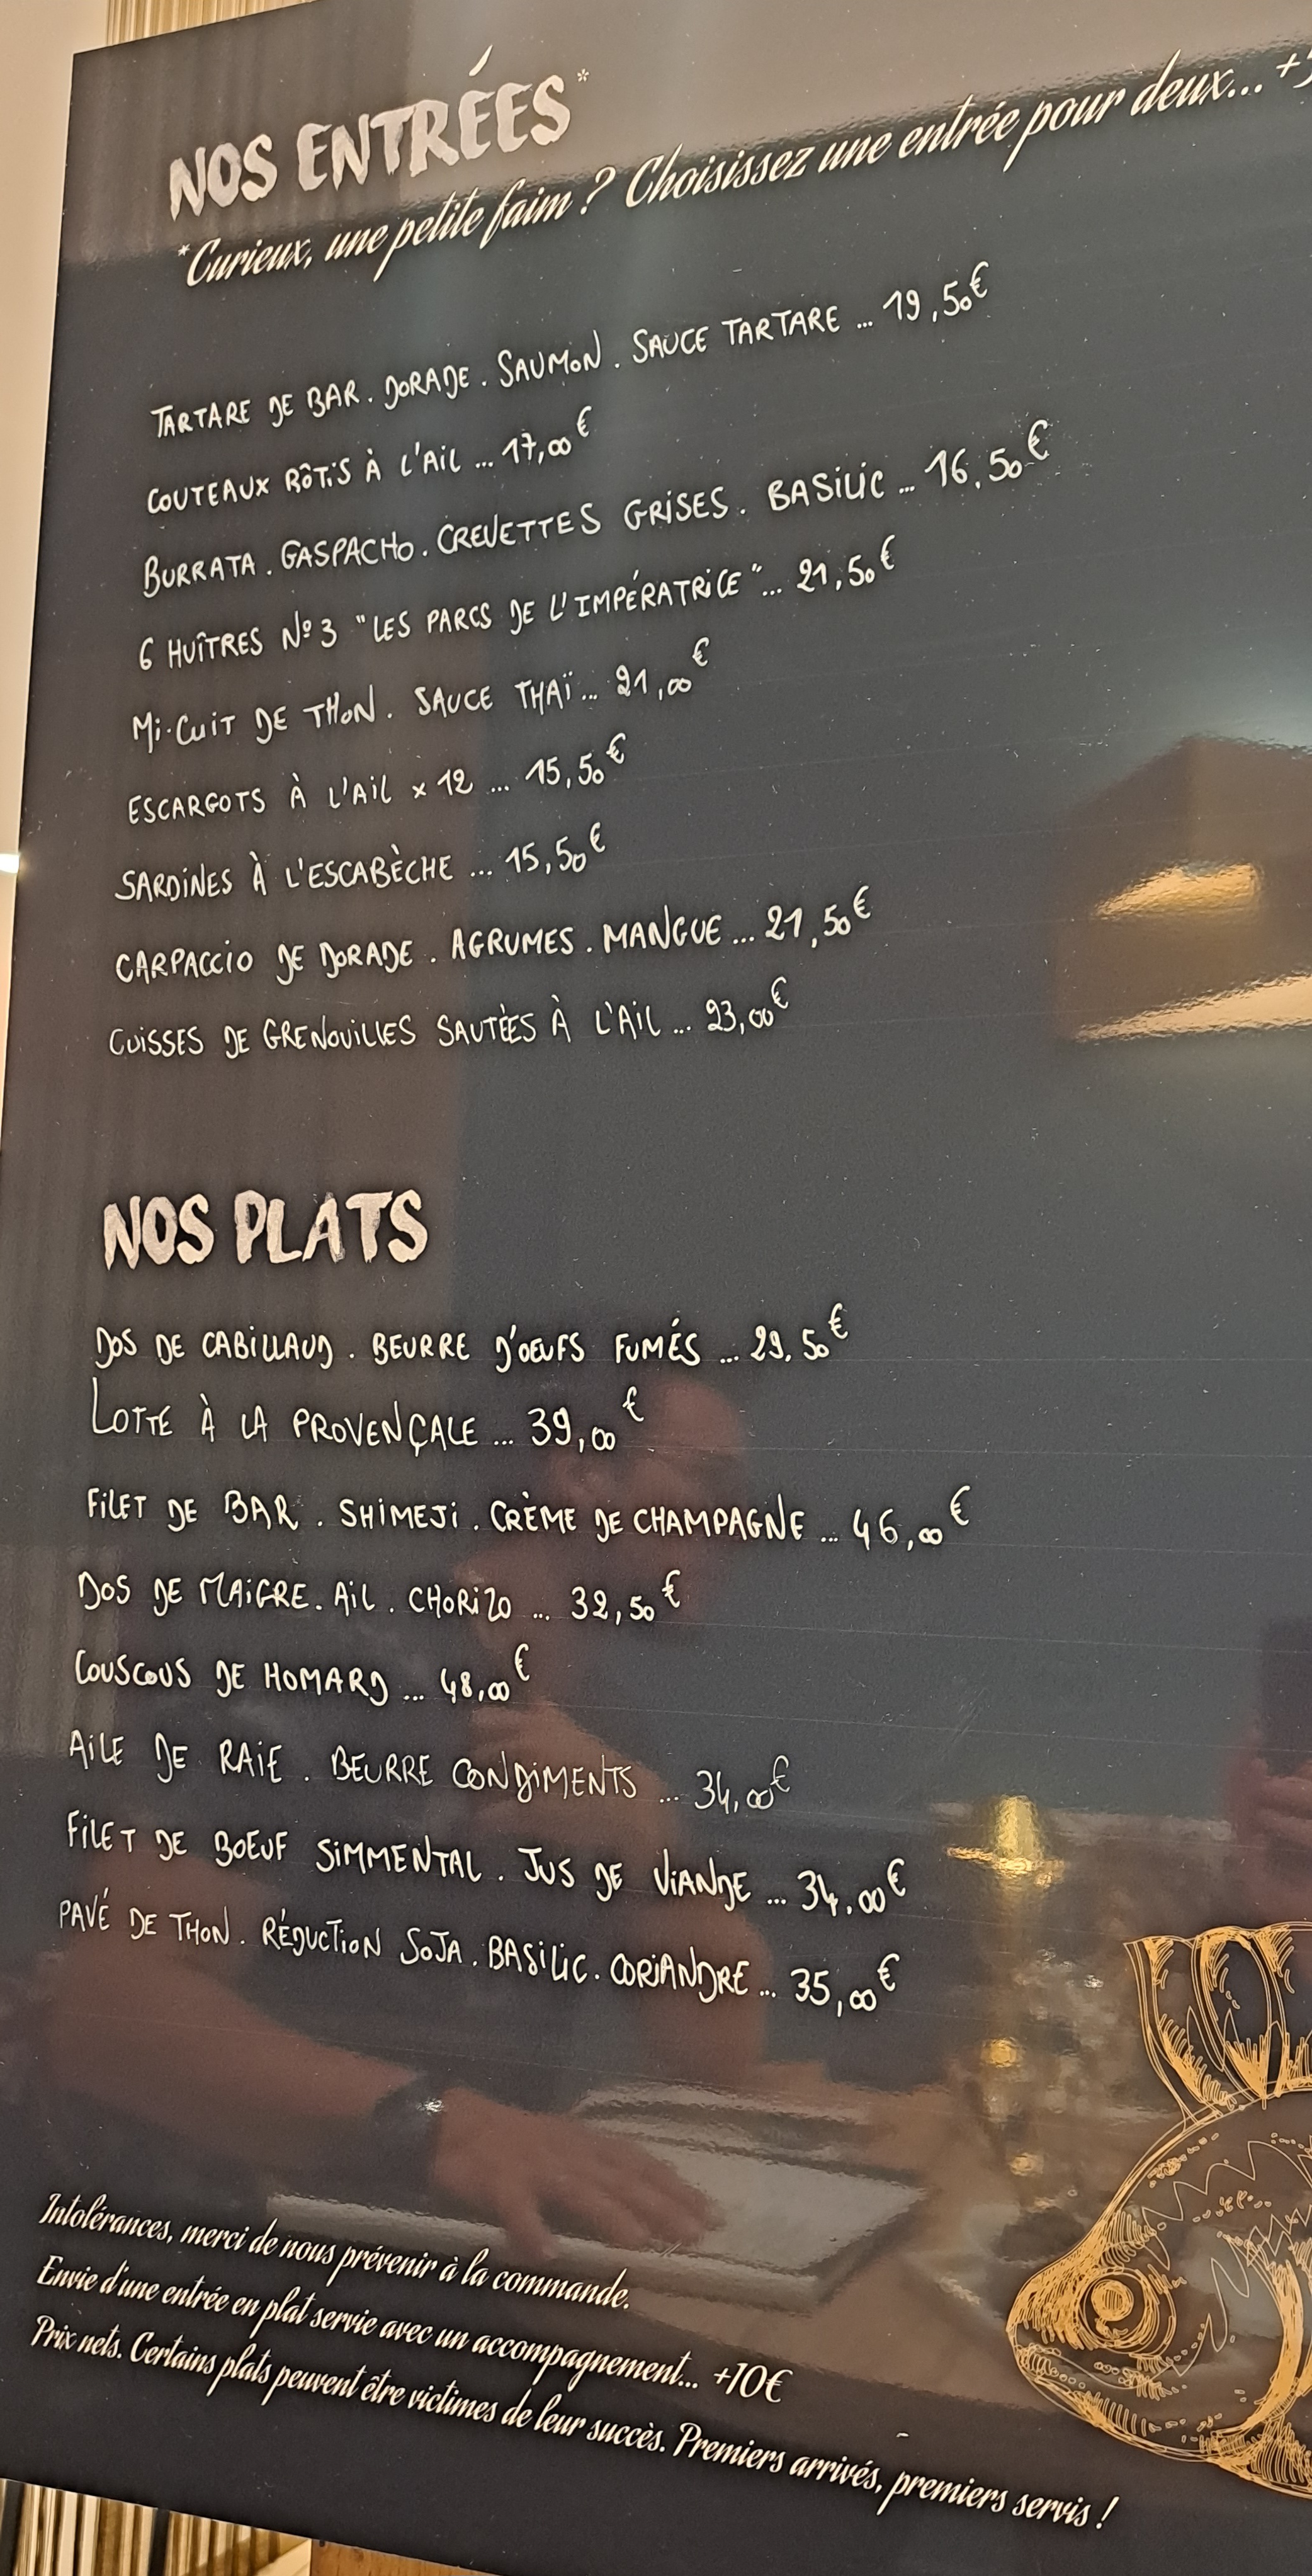 NOS ENTRÉES*
*Curieux, une petite faim ? Choisissez une entrée pour deux... +
TARTARE DE BAR. DORADE. SAUMON. SAUCE TARTARE ... 19,50€
COUTEAUX RÔTIS À L'AIL ... 17,00€
BURRATA. GASPACHO. CREVETTES GRISES. BASILIC ... 16,50€
6 HUÎTRES N°3 "LES PARCS DE L'IMPÉRATRICE"... 21,50€
MI-CUIT DE THON. SAUCE THAÏ... 21,00€
ESCARGOTS À L'AIL x 12 ... 15,50€
SARDINES À L'ESCABÈCHE ... 15,50€
CARPACCIO DE DORADE. AGRUMES. MANGUE ... 21,50€
CUISSES DE GRENOUILLES SAUTÉES À L'AIL ... 23,00€
NOS PLATS
DOS DE CABILLAUD. BEURRE D'OEUFS FUMÉS ... 29.50€
LOTTE À LA PROVENÇALE ... 39,00€
FILET DE BAR. SHIMEJI. CRÈME DE CHAMPAGNE ... 46,00€
DOS DE MAIGRE. AIL. CHORIZO ... 32,50€
COUSCOUS DE HOMARD ... 48,00€
AILE DE RAIE. BEURRE CONDIMENTS ... 34,00€
FILET DE BOEUF SIMMENTAL. JUS DE VIANDE ... 34,00€
PAVÉ DE THON. RÉDUCTION SOJA. BASILIC. CORIANDRE ... 35,00€
Intolérances, merci de nous prévenir à la commande.
Envie d'une entrée en plat servie avec un accompagnement... +10€
Prix nets. Certains plats peuvent être victimes de leur succès. Premiers arrivés, premiers servis !